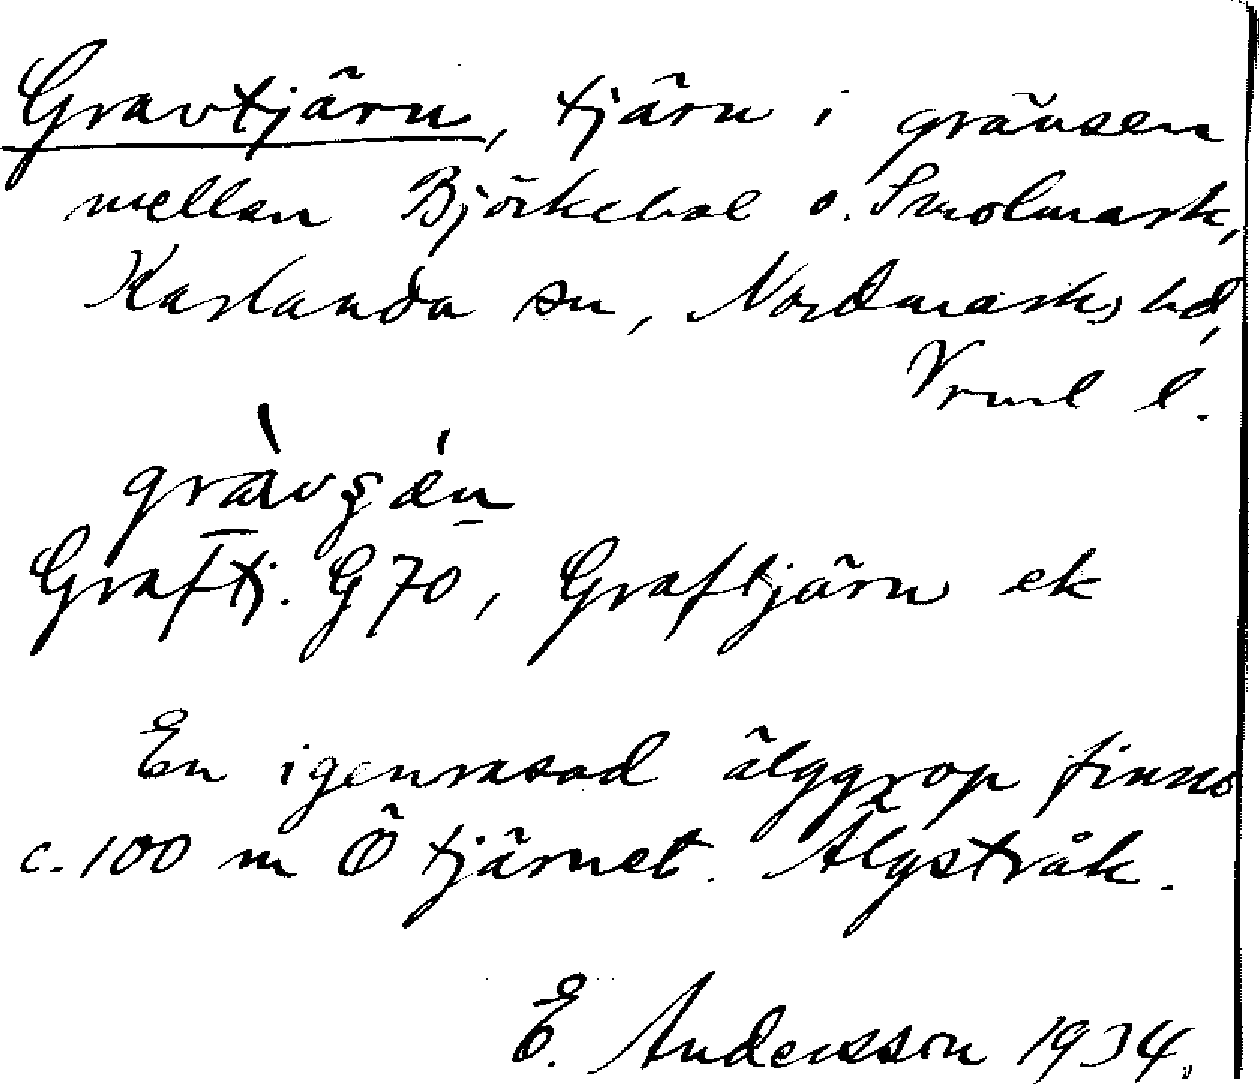 Gravtjärn, tjärn i gränsen
mellan Björkebol o. Smolmark,
Karlanda sn, Nordmarks hd,
Vrml l.
Graftj. G70, Graftjärn ek
En igenrasad älggrop finns
c. 100 m Ö tjärnet. Älgstråk.
E. Andersson 1934.